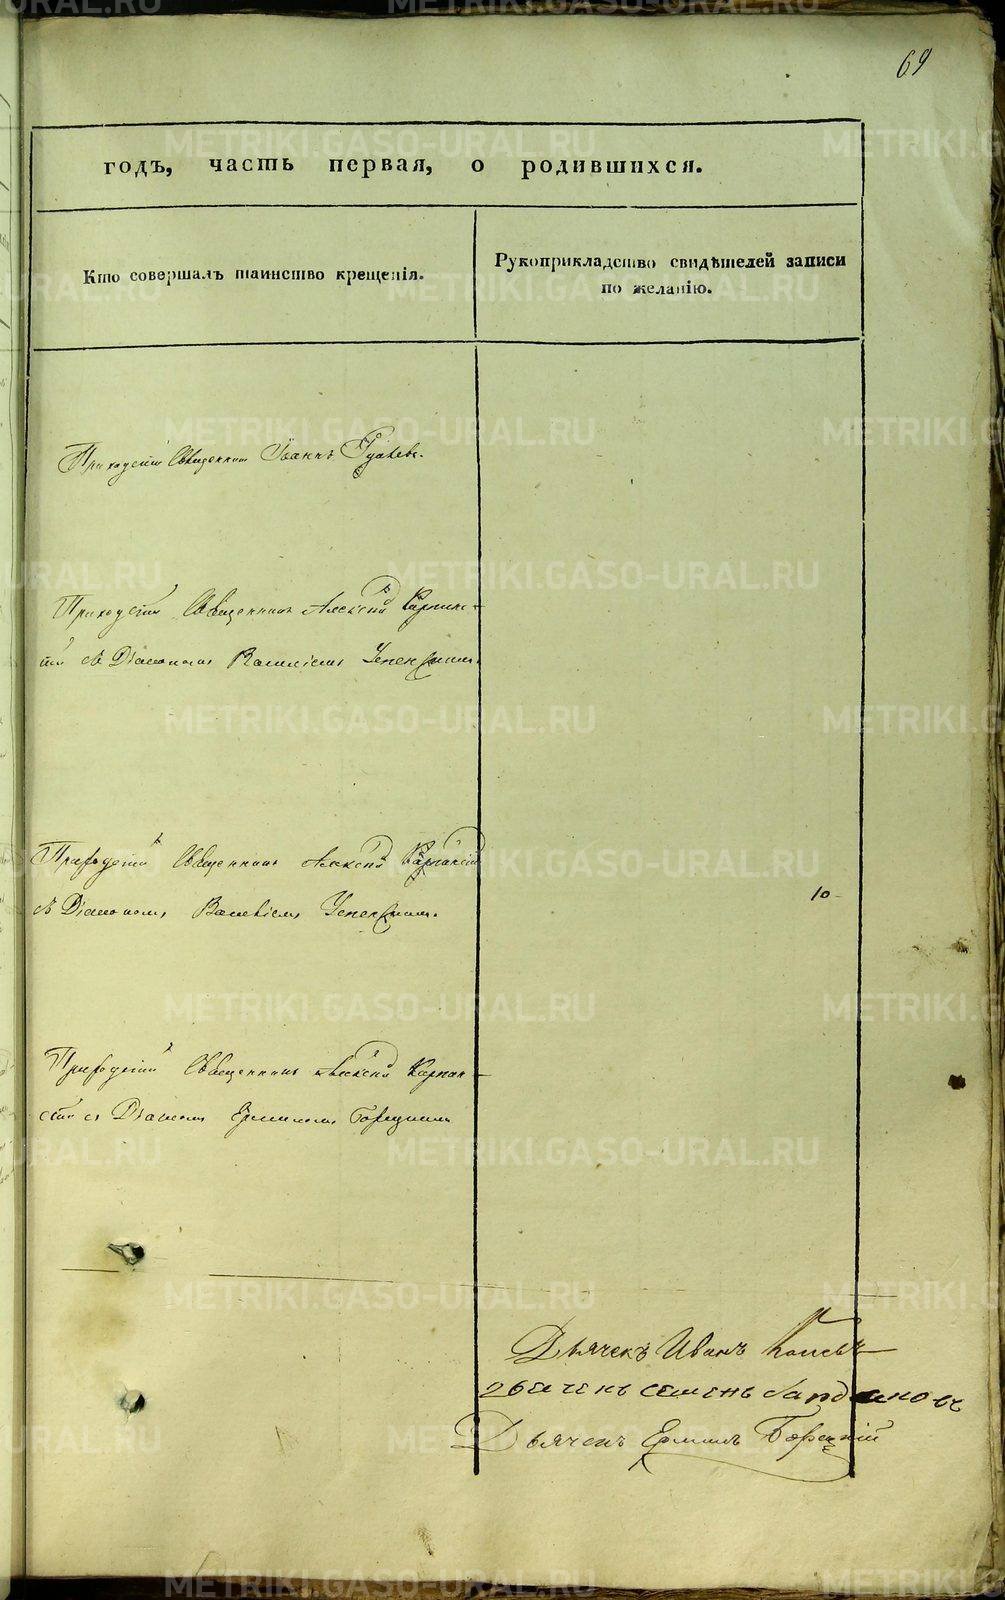 69
годъ, часть первая, о родившихся.
Кто совершалъ таинство крещенія.
Рукоприкладство свидѣтелей записи
по желанію.
Приходскій Священникъ Іоаннъ
Приходскій Священникъ Алексѣй Карпин-
скій съ Діакономъ Василіемъ Успенскимъ.
Приходскій Священникъ Алексѣй Карпинскій
съ Діакономъ Василіемъ Успенскимъ.
10
Приходскій Священникъ Алексѣй Карпин-
скій съ Дьячкомъ Ермиломъ Борецкимъ
Дьячекъ Иванъ Поповъ
семенъ
Дьячекъ Ермилъ Борецкій
METRIKI.GASO-URAL.RU